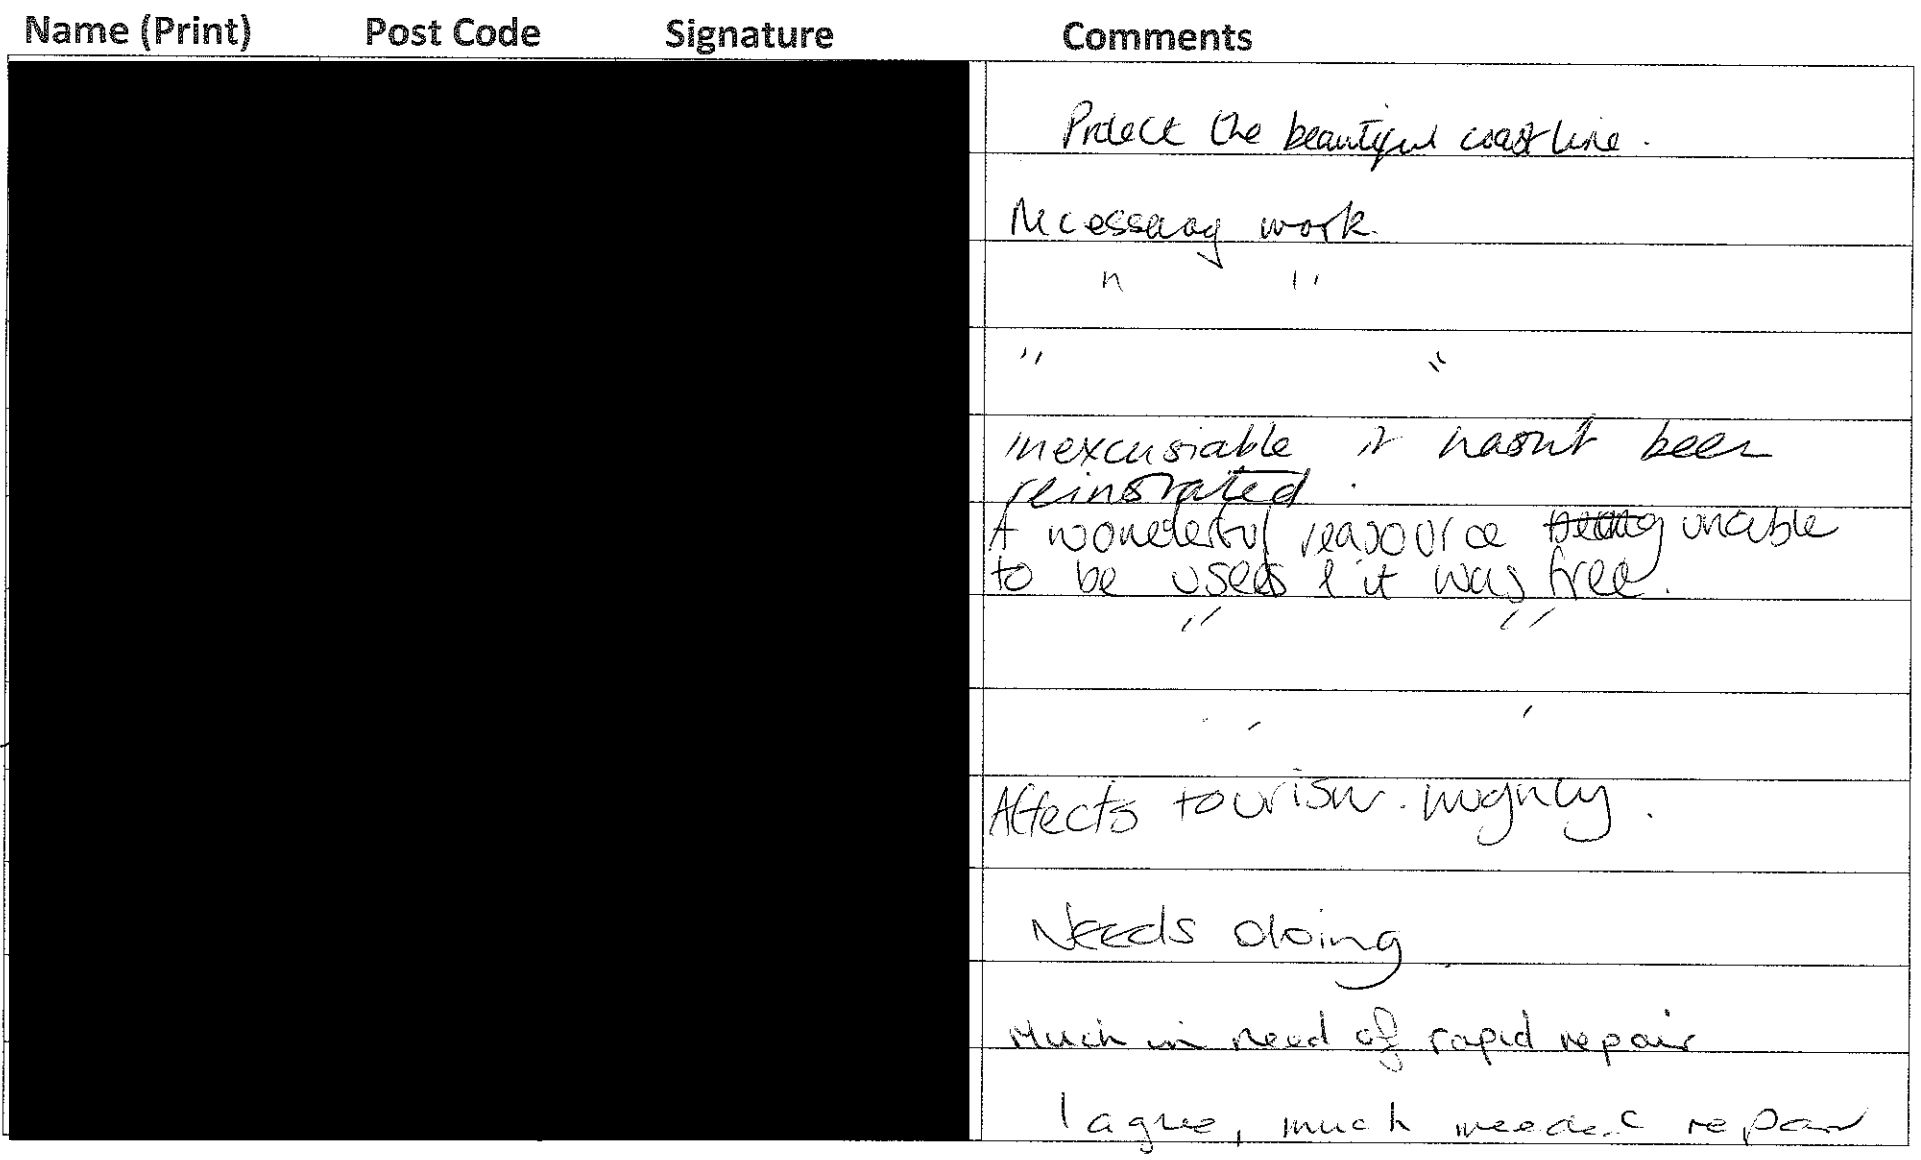 Name (Print) Post Code Signature Comments
Protect the beautiful coastline.
Necessary work.
" "
" "
inexcusiable it hasnt been
reinstated.
A wonderful reasource being unable
to be used & it was free.
" "
" "
Affects tourism hugely.
Needs doing
Much in need of rapid repair
I agree, much needed repair